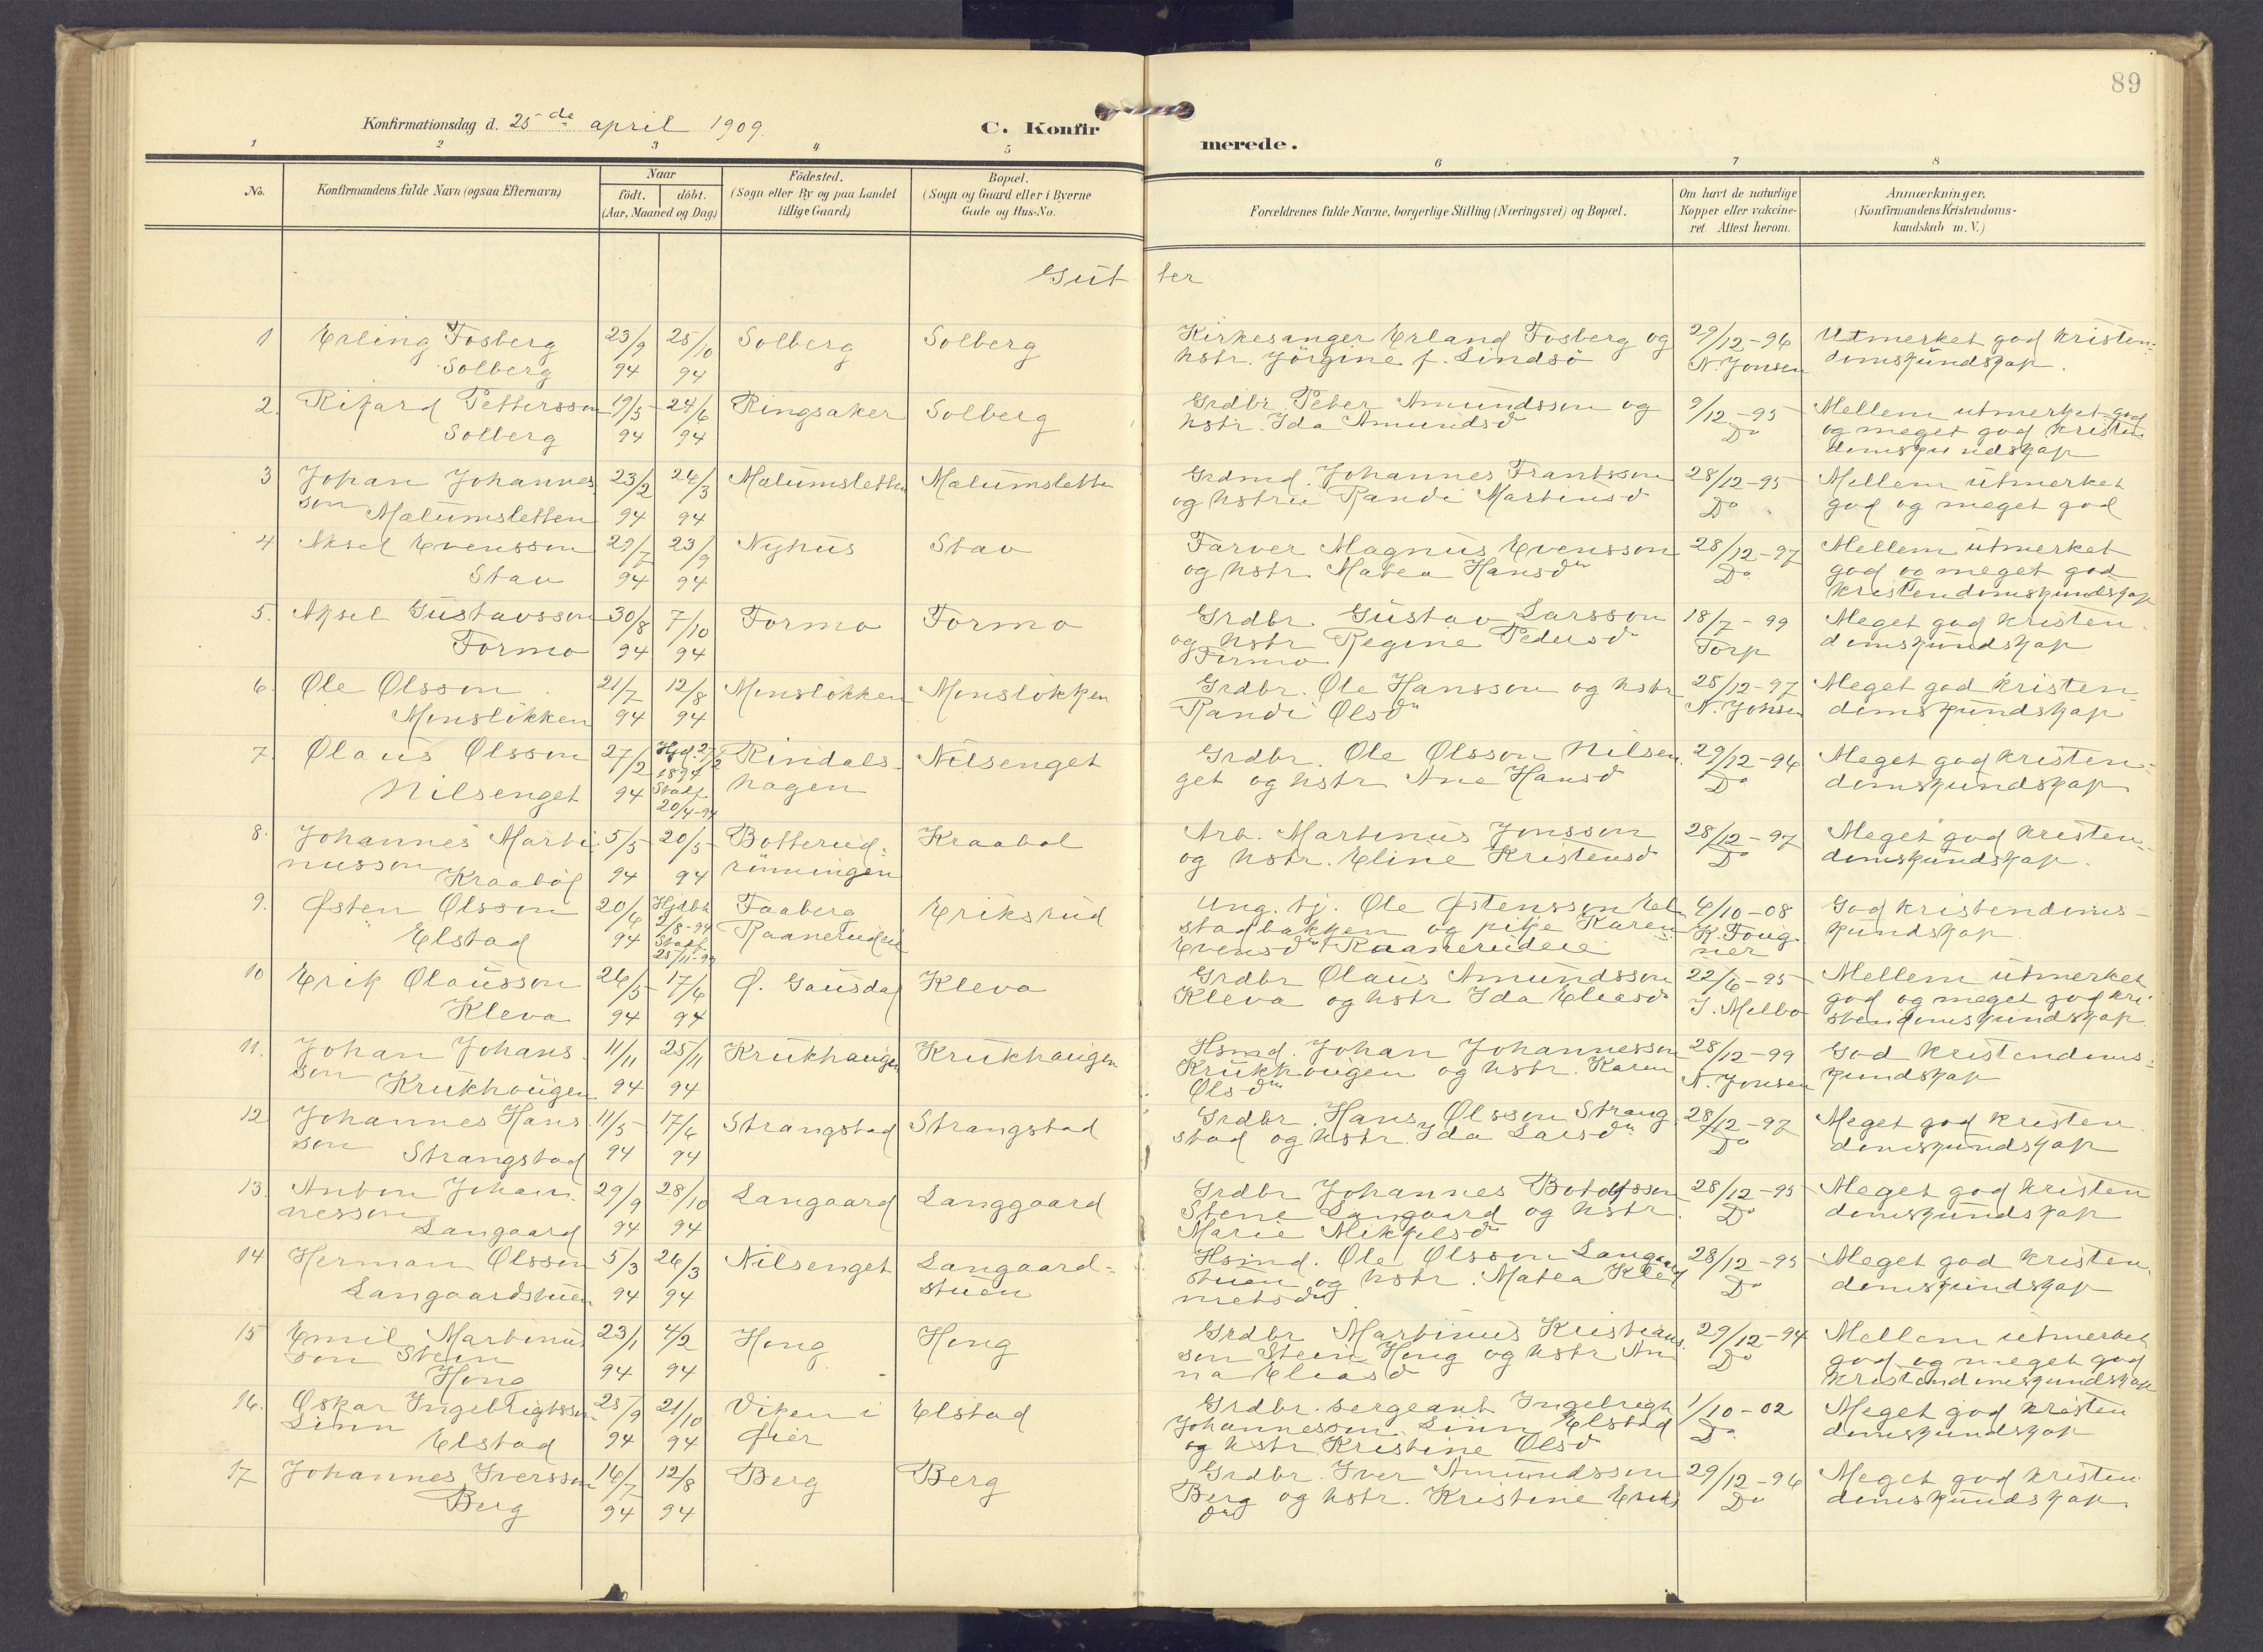 89
Konfirmationsdag d. 25de april 1909.
C. Konfirmerede.
1 2 3 4 5 6 7 8
No.
Konfirmandens fulde Navn (ogsaa Efternavn)
Naar
födt. döbt.
(Aar, Maaned og Dag)
Födested.
(Sogn eller By og paa Landet
tillige Gaard)
Bopæl.
(Sogn og Gaard eller i Byerne
Gade og Hus-No.
Forældrenes fulde Navne, borgerlige Stilling (Næringsvei) og Bopæl.
Om havt de naturlige
Kopper eller vakcine-
ret. Attest herom.
Anmærkninger,
(Konfirmandens Kristendoms-
kundskab m. V.)
Gutter
1 Erling Fosberg 23/9 25/10 Solberg Solberg Kirkesanger Erland Fosberg og 29/12-96 Utmerket god kristen-
Solberg 94 94 hstr. Jörgine f. Lindsö N. Jonsen domskundskap.
2. Rikard Pettersson 19/5 24/6 Ringsaker Solberg Grdbr. Peter Amundsson og 9/12-95 Mellem utmerket god
Solberg 94 94 hstr. Ida Amundsd Do og meget god kristen
domskundskap
3 Johan Johannes 23/2 26/3 Mælumsletten Mælumslette Grdmd. Johannes Frantsson 28/12-95 Mellem utmerket
son Mælumsletten 94 94 og hstru Randi Martinusd Do god og meget god
4 Aksel Evensson 29/7 23/9 Nyhus Stav Farver Magnus Evensson 28/12-97 Mellem utmerket
Stav 94 94 og hstr. Matea Hansdr Do god og meget god
kristendomskundskap
5. Aksel Gustavsson 30/8 7/10 Formo Formo Grdbr. Gustav Larsson 18/7-99 Meget god kristen
Formo 94 94 og hstr Regine Pedersdr Torp domskundskap
Formo
6. Ole Olsson 21/7 12/8 Monslökken Monslökken Grdbr. Ole Hansson og hstr 28/12-97 Meget god kristen
Monslökken 94 94 Randi Olsdr N. Jonsen domskundskap
7. Olaus Olsson 27/2 Hjd. 27/2 Rindals- Nilsenget Grdbr. Ole Olsson Nilsen 29/12-96 Meget god kristen-
1894 hagen get og hstr Ane Hansd Do domskundskap
Nilsenget 94 Stadf. 20/4-94
8. Johannes Marti 5/5 20/5 Botterud- Kraabøl Arb. Martinus Jonsson 28/12-97 Meget god kristen-
nusson Kraaböl 94 94 rünningen og hstr. Eline Kristensd Do domskundskap.
9. Østen Olsson 20/6 Hjdbt Faaberg Eriksrud Ung. tj. Ole Østensson El 6/10-08 God kristendoms-
Elstad 94 2/8-94 Raanerudeie stadbakken og pike Karen K. Foug kundskap
Stadf. 25/11-94 Evensdr Raanerudeie ner
10 Erik Olausson 26/5 17/6 Ø. Gausdal Kleva Grdbr Olaus Amundsson 22/6-95 Mellem utmerket
Kleva 94 94 Kleva og hstr Ida Eliasd J. Melbo god og meget god kri
stendomskundskap
11. Johan Johans 11/11 25/11 Krükhaugen Krükhaugen Hsmd. Johan Johannesson 28/12-99 God kristendoms-
son Krukhougen 94 94 Krukhougen og hstr. Karen N. Jonsen kundskap
Olsdr
12 Johannes Hans 11/5 17/6 Strangstad Strangstad Grdbr. Hans Olsson Strang 28/12-97 Meget god kristen
son Strangstad 94 94 stad og hstr. Ida Larsdr Do domskundskap
13. Anton Johan 29/9 28/10 Langaard Langgaard Grdbr Johannes Botolfsson 28/12-95 Meget god kristen
nesson 94 94 Stene Langaard og hstr. Do domskundskap
Langaard Marie Mikkelsdr
14 Herman Olsson 5/3 26/3 Nilsenget Langaard- Hsmd. Ole Olsson Langaard 28/12-95 Meget god kristen
Langaardstuen 94 94 stuen stuen og hstr. Matea Kle Do domskundskap
metsdr
15 Emil Martinus 23/1 4/2 Hong Hong Grdbr Martinus Kristians 29/12-94 Mellem utmerket
son Steen 94 94 son Steen Hong og hstr An Do god og meget god
Hong na Eliasd kristendomskundskap
16. Oskar Ingebrigtsson 25/9 21/10 Viken i Elstad Grdbr. sergeant Ingebregt 1/10-02 Meget god kristen
Linn Elstad 94 94 Øier Johannesson Linn Elstad Do domskundskap
og hstr. Kristine Olsd
17 Johannes Iversson 16/7 12/8 Berg Berg Grdbr. Iver Amundsson 29/12-96 Meget god kristen
Berg 94 94 Berg og hstr. Kristine Eriks Do domskundskap.
dr